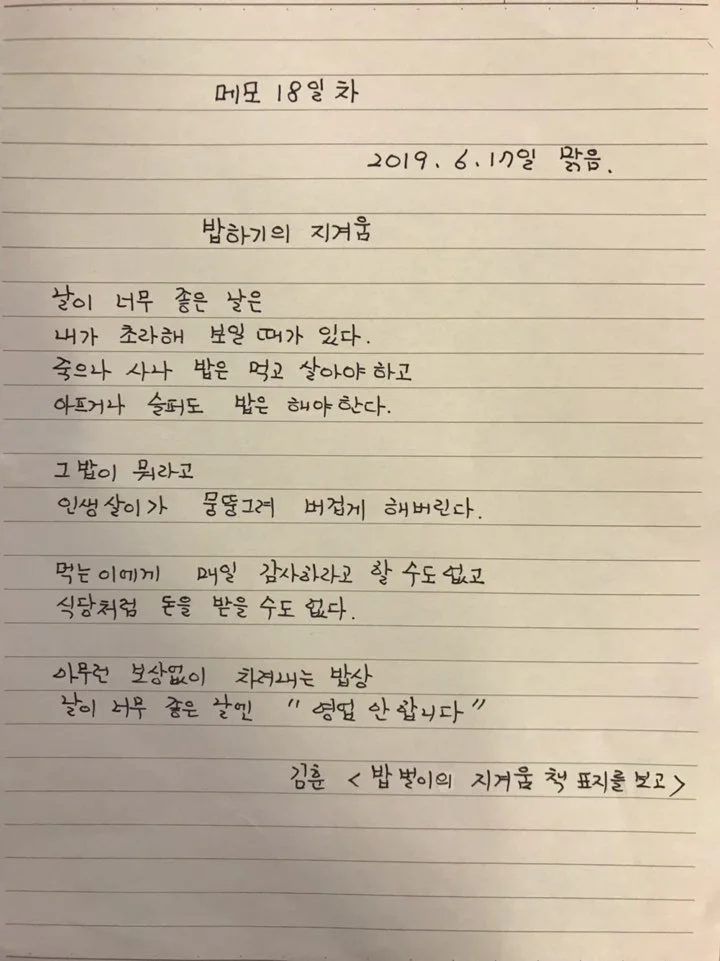 메모 18일 차
2019. 6. 17일 맑음.
밥하기의 지겨움
날이 너무 좋은 날은
내가 초라해 보일 때가 있다.
죽으나 사나 밥은 먹고 살아야 하고
아프거나 슬퍼도 밥은 해야한다.
그 밥이 뭐라고
인생살이가 뭉뚱그려 버겁게 해버린다.
먹는 이에게 매일 감사하라고 할 수도 없고
식당처럼 돈을 받을 수도 없다.
아무런 보상없이 차려내는 밥상
날이 너무 좋은 날엔 "영업 안 합니다"
김훈 <밥벌이의 지겨움 책 표지를 보고>